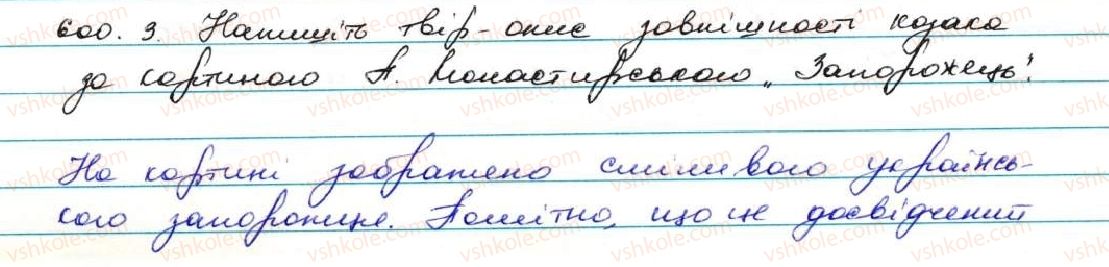 600. 3. Напишіть твір-опис зовнішності козака
за картиною А. Монастирського „Запорожець".
На картині зображено сміливого українсь-
кого запорожця. Помітно, що це досвідчений